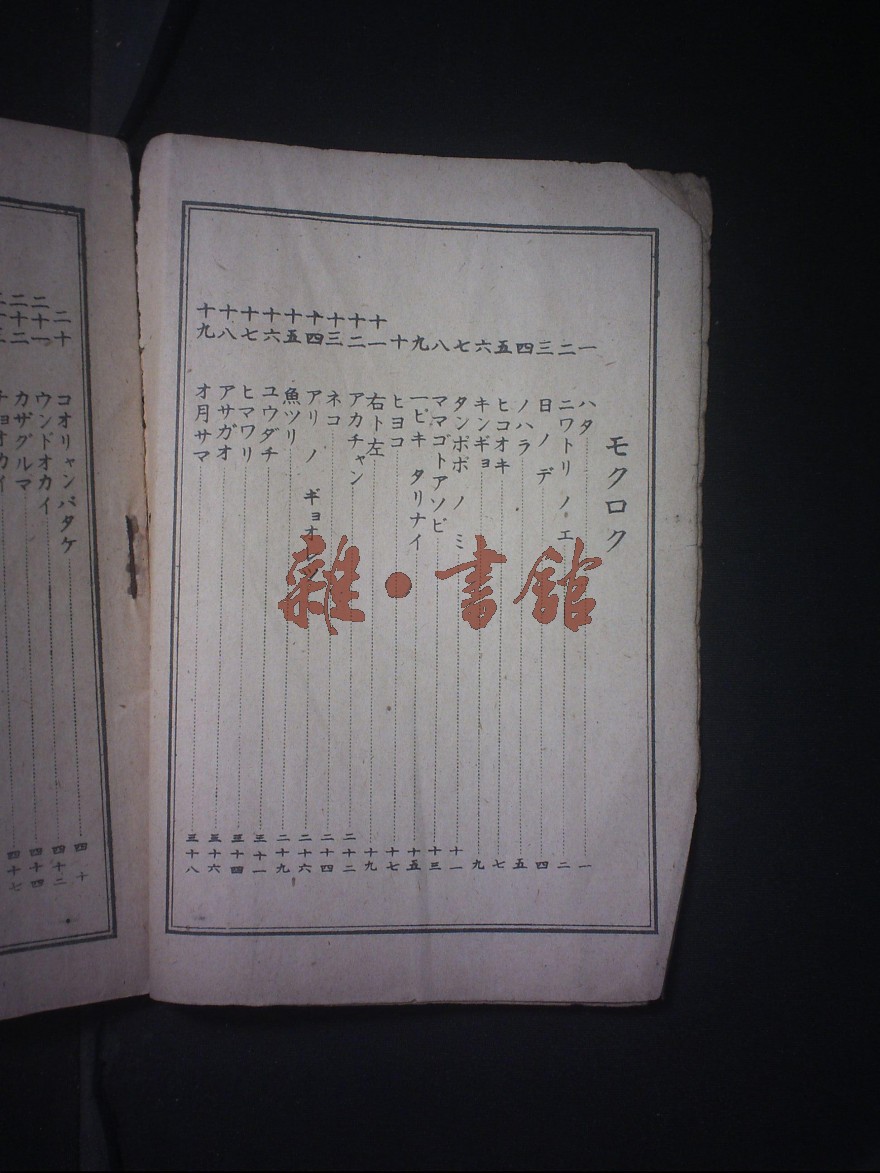 モクロク
一 ハタ 一
二 ニワトリ ノ エ 二
三 日 ノ デ 四
四 ノハラ 五
五 ヒコオキ 七
六 キンギョ 九
七 タンポポ ノ ミ 十一
八 ママゴトアソビ 十三
九 一ピキ タリナイ 十五
十 ヒヨコ 十七
十一 右ト左 十九
十二 アカチャン 二十二
十三 ネコ 二十四
十四 アリ ノ ギョオレツ 二十六
十五 魚ツリ 二十九
十六 ユウダチ 三十一
十七 ヒマワリ 三十四
十八 アサガオ 三十六
十九 オ月サマ 三十八
二十 コオリャンバタケ 四十
二十一 ウンドオカイ 四十二
二十二 カザグルマ 四十四
チョオカイ 四十七
雜·書館